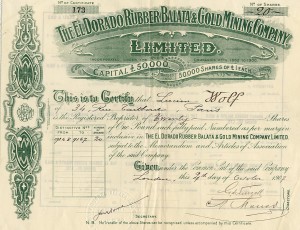 No. of Certificate
173
No. of Shares
20
The El Dorado Rubber, Balata & Gold Mining Company,
Limited.
Capital £50000
50000 Shares of £1 each
This is to Certify that Lucien Wolf
Paris
is the Registered Proprietor of Twenty Shares
of One Pound each fully paid, Numbered as per margin
inclusive in The El Dorado Rubber, Balata & Gold Mining Company, Limited,
subject to the Memorandum and Articles of Association
of the said Company.
Distinctive Nos.
From to
Given under the Common Seal of the said Company
London, the day of October 190
Secretary
N.B. No transfer of the above Shares can be registered unless accompanied by this Certificate.